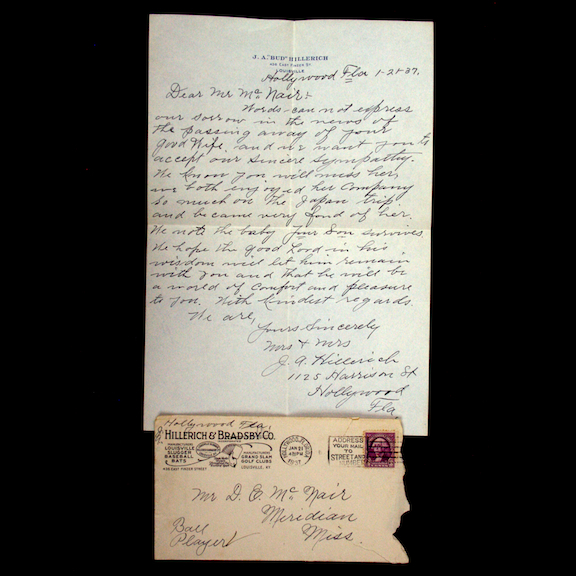 J. A. "BUD" HILLERICH
LOUISVILLE
Hollywood Fla 1-21-37.
Dear Mr Mc Nair:
Words can not express
our sorrow in the news of
the passing away of your
good Wife, and we want you to
accept our sincere sympathy.
We know you will miss her,
we both enjoyed her company
so much on the Japan trip
and became very fond of her.
We note the baby your Son survives
We hope the good Lord in his
wisdom will let him remain
with you and that he will be
a world of comfort and pleasure
to you. With kindest regards.
We are,
Yours Sincerely
Mrs & Mrs
J. A. Hillerich
1125 Harrison St
Hollywood
Fla
Hollywood Fla,
HILLERICH & BRADSBY CO.
LOUISVILLE
SLUGGER
BASEBALL
BATS
GRAND SLAM
GOLF CLUBS
LOUISVILLE, KY.
JAN 21
1937
ADDRESS
YOUR MAIL
TO
STREET AND
NUMBER
Mr D. E. Mc Nair
Meridian
Miss.
Ball
Player